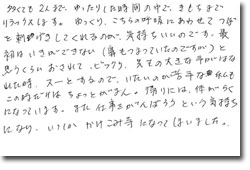 多くても2人まで。ゆったりした時間の中で、きもちまで
リラックスします。ゆっくり、こちらの呼吸にあわせてつぼ
を刺激してくれるのが、気持ちいいのです。最
初はいきができない（痛もつまっていたのですが）と
思うくらいおされて、ビックリ、先生の大きな手がはな
れた時、スーとするので、いたいのが苦手な私も
この時だけはちょっとがまん。帰りには、体がらく
になっています。また仕事をがんばろうという気持ち
になり、いつしかかけこみ寺になってしまいました。